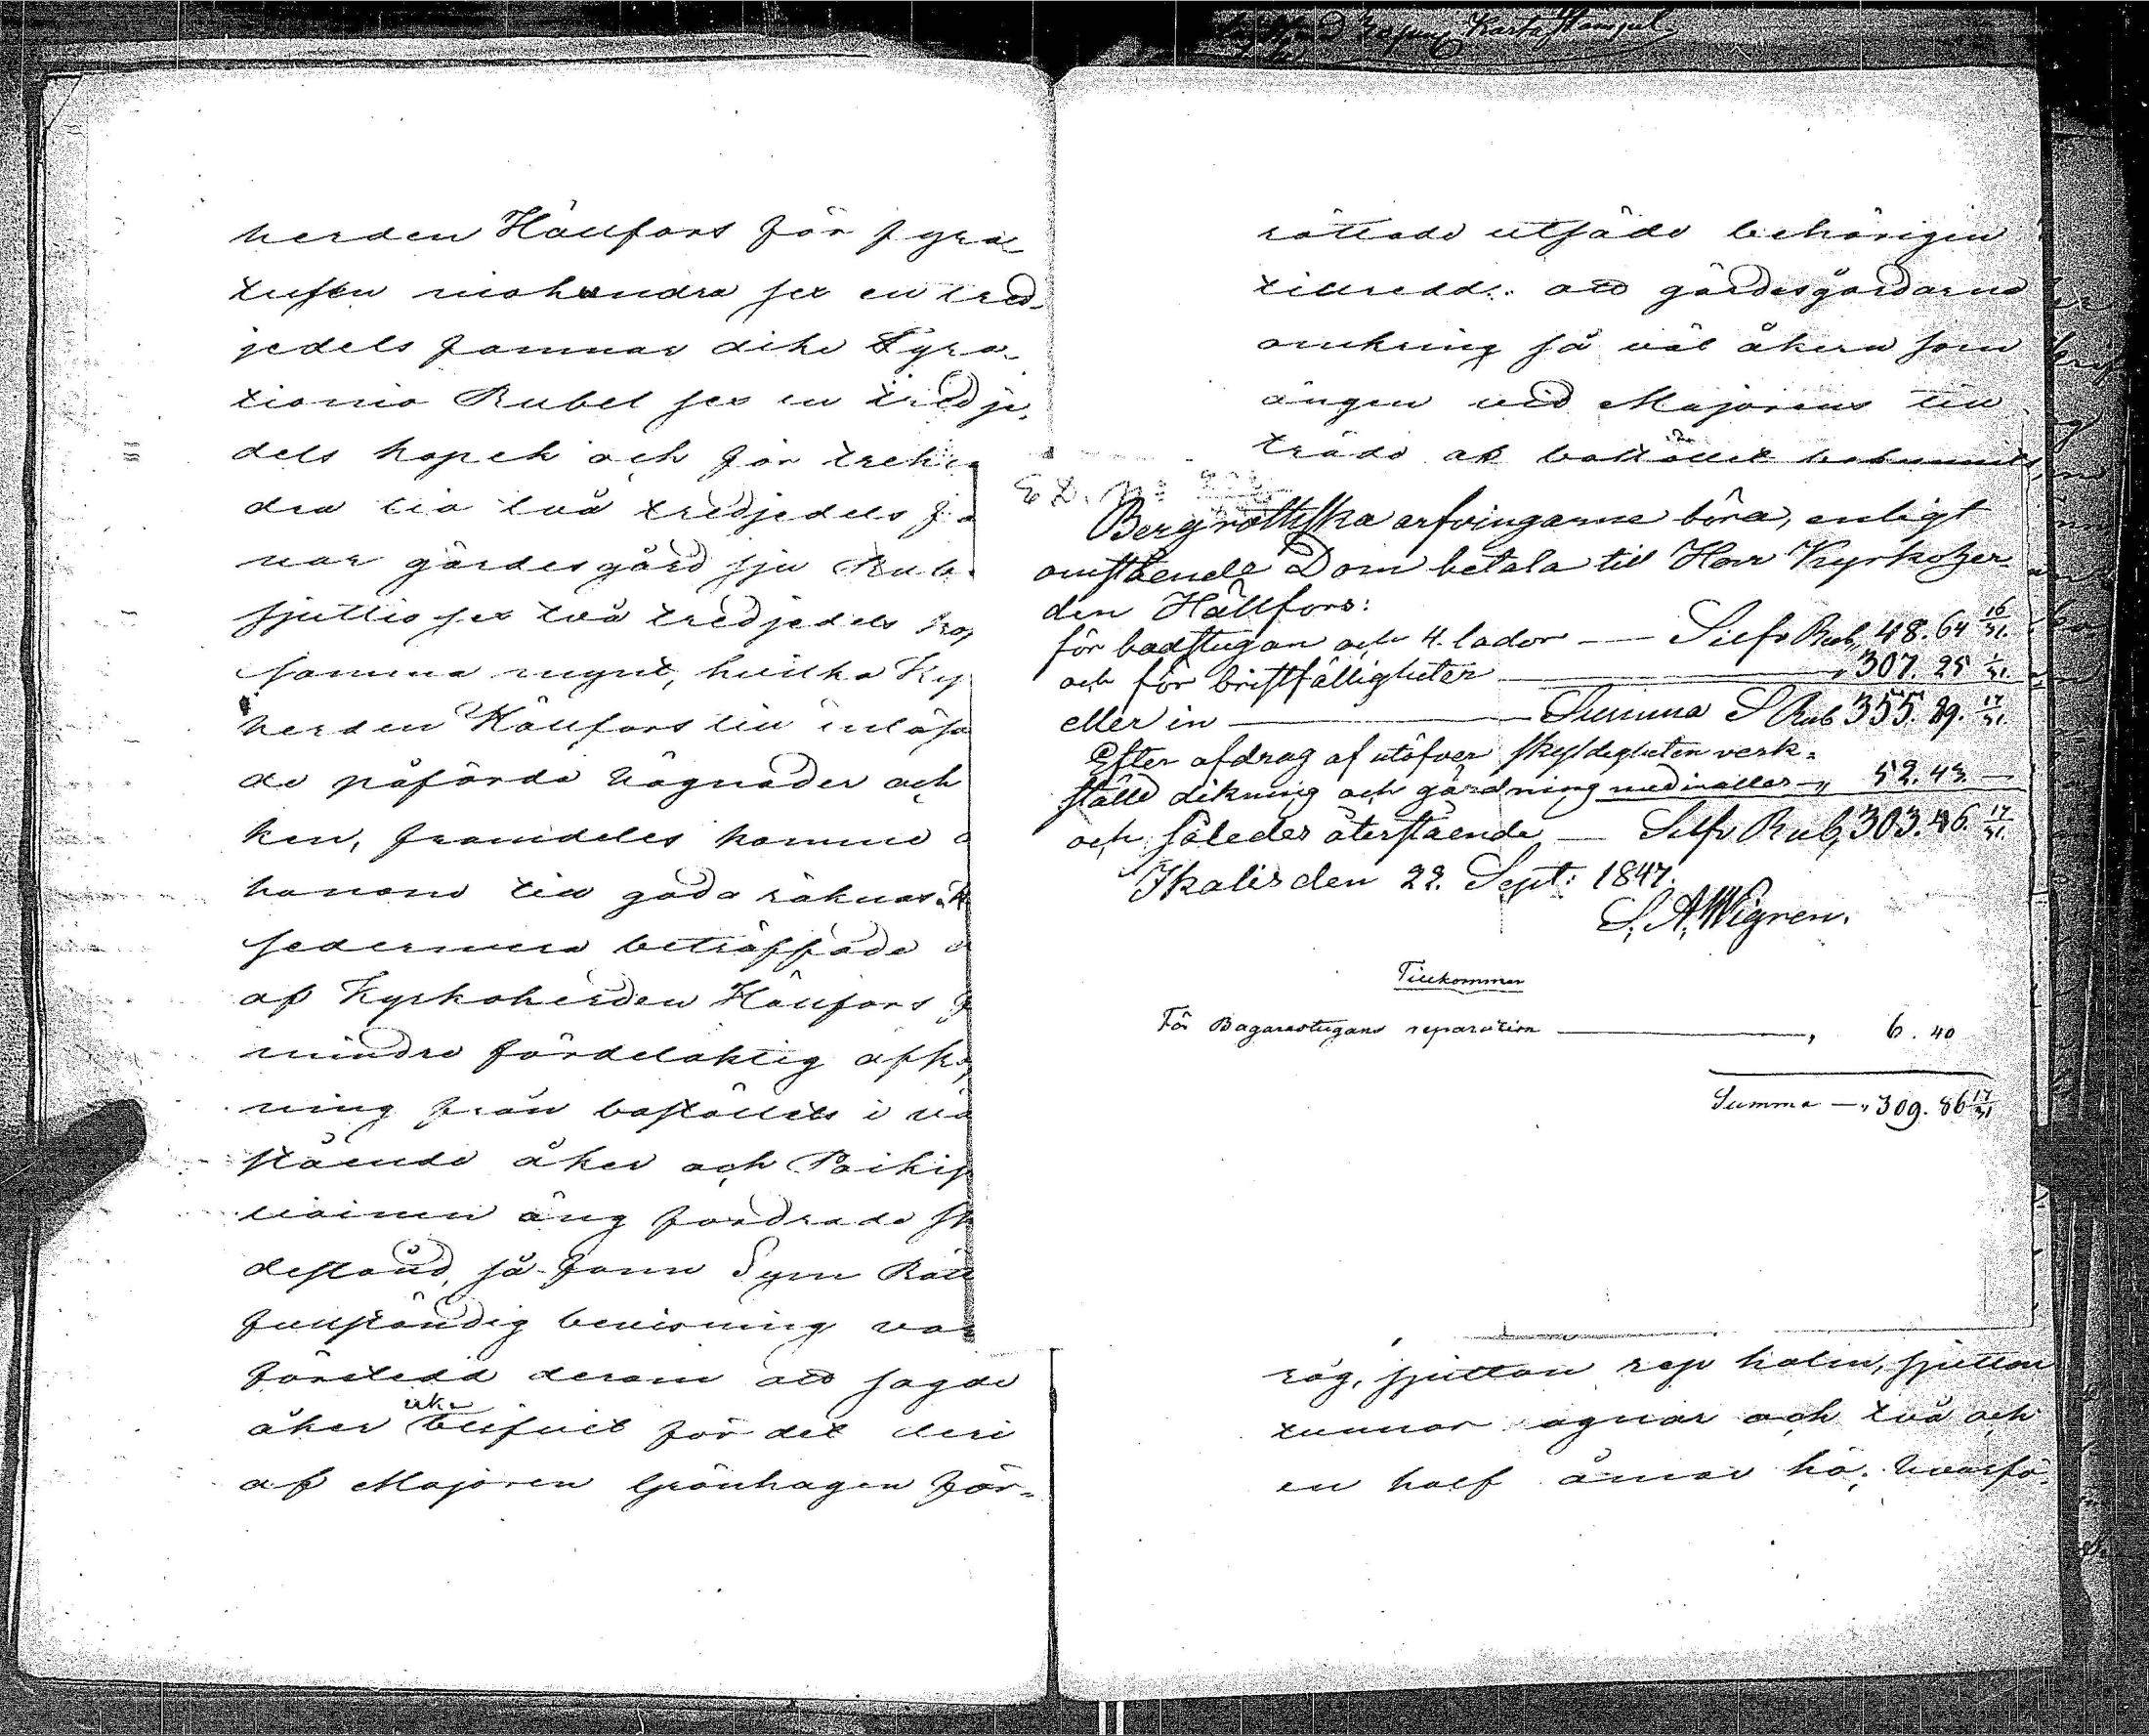 herden Hällfors för fyra
tusen niohundra sex en tred-
jedels famnar dike Fyra-
tionio Rubel sex en tredje-
dels kopek och för trehun
dra tio två tredjedels fa
nar gärdesgård sju Rub.
sjuttio sex två tredjedels kop
samma mynt, hvilka Ky
herden Hällfors till inlösa
de påförda byggnader och
ken, framdeles komme
honom till godo räknas.
sedermera beträffade
af Kyrkoherden Hällfors
mindre fördelaktig afkast
ning från boställets i
stående åker och Poikis
äng fordrade sk
destånd, så fann Syne Rätt
fullständig bevisning va
förstedd derom att sagde
åker icke blifvit för det deri
af Majoren Grönhagen för-
rättade utsäde behörigen
tillredd: att gärdesgårdarna
omkring så väl åkern som
ängen vid Majorens till
träde af bostället
E D. No
Bergrothska arfvingarne böra, enligt
omstående Dom betala till Herr Kyrkoher-
den Hällfors:
för badstugan och 4. lador — Silfv Rub, 48. 64 16/31.
och för bristfälligheter — " 307. 25 1/31.
eller in — Summa S Rub 355. 89. 17/31.
Efter afdrag af utöfver skyldigheten verk-
ställd dikning och gärdning medinalles — " 52. 43. —
och således återstående — Silfv Rub, 303. 46. 17/31.
Ikalis den 22. Sept: 1847.
S. A. Wigren.
Tillkommer
För Bagarestugans reparation — " 6. 40
Summa — " 309. 86 17/31
råg, sjutton rep halm, sjutton
tunnor agnar och två och
en half åmar hö; hvarfö-